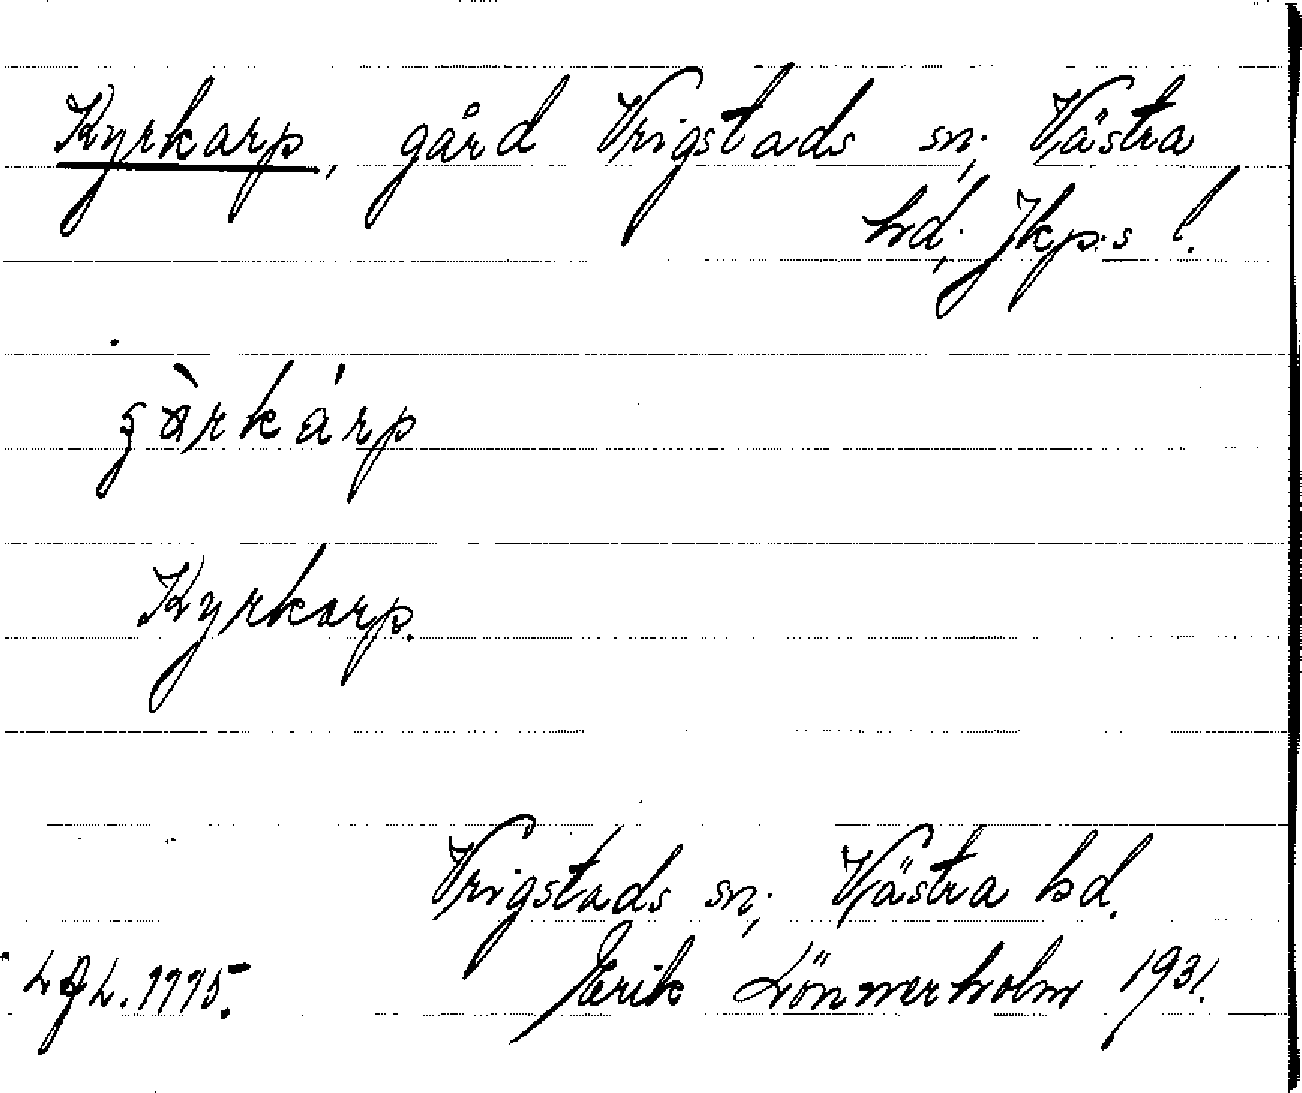 Kyrkarp, gård Vrigstads sn; Västra
hd; Jkp:s l.
Kyrkarp.
Vrigstads sn; Västra hd.
Erik Lönnerholm 1931.